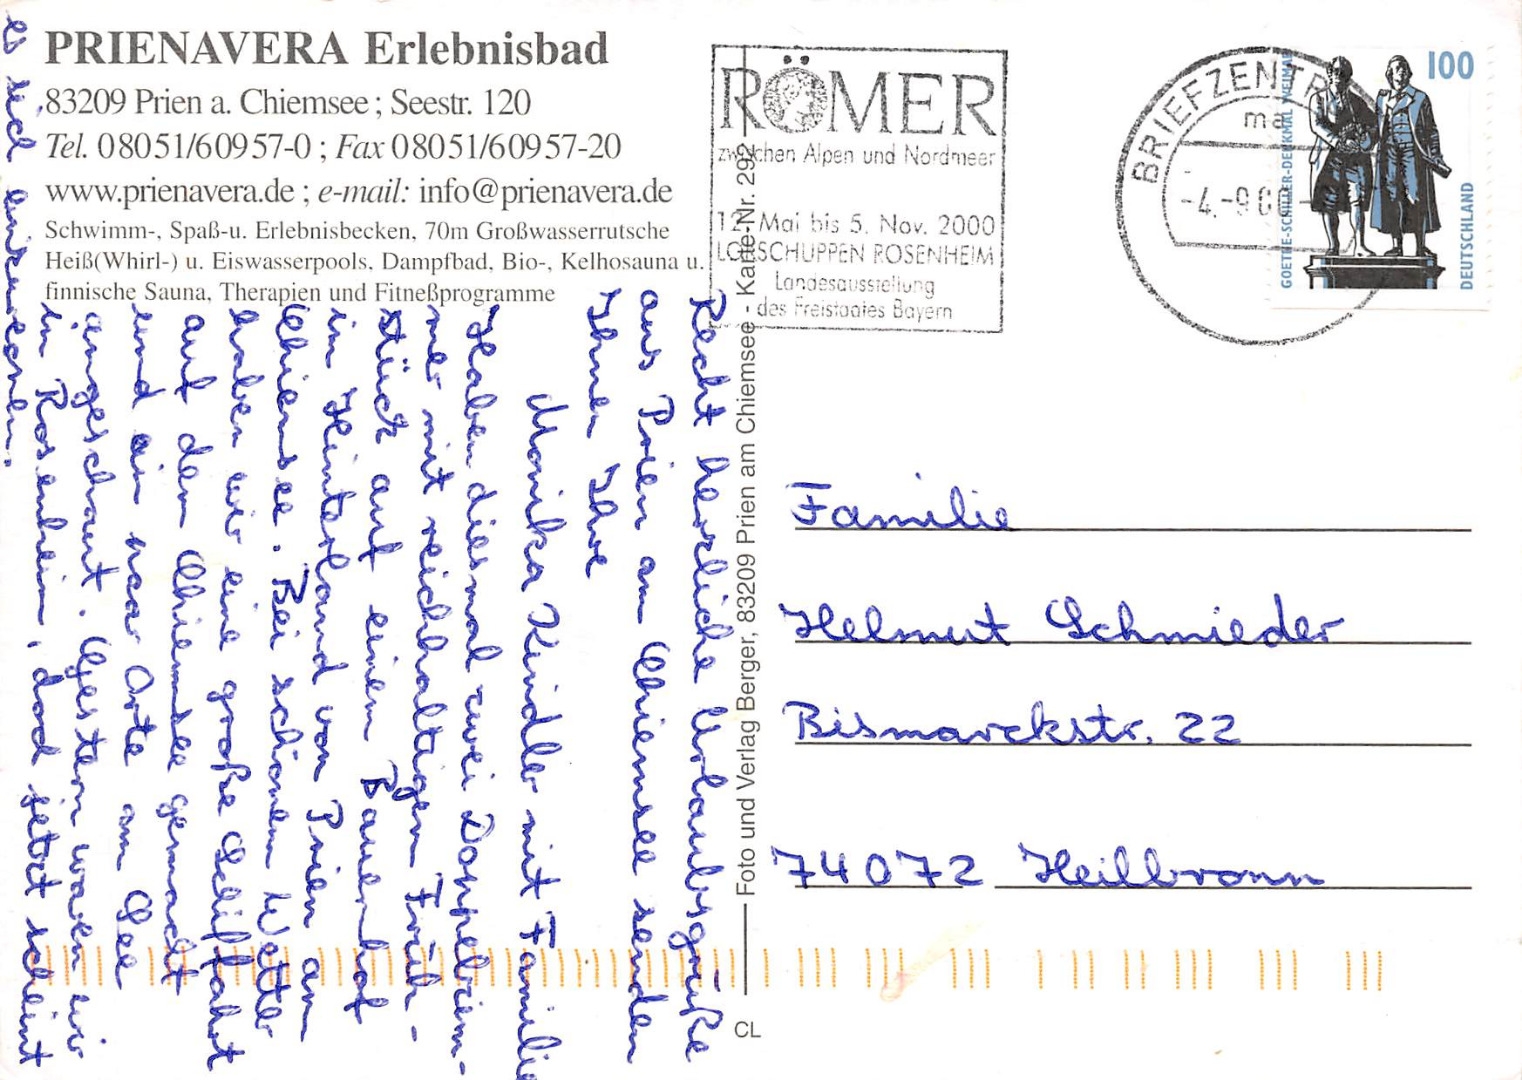 PRIENAVERA Erlebnisbad
83209 Prien a. Chiemsee ; Seestr. 120
Tel. 08051/60957-0 ; Fax 08051/60957-20
www.prienavera.de ; e-mail: info@prienavera.de
Schwimm-, Spaß-u. Erlebnisbecken, 70m Großwasserrutsche
Heiß(Whirl-) u. Eiswasserpools, Dampfbad, Bio-, Kelhosauna u.
finnische Sauna, Therapien und Fitneßprogramme
RÖMER
zwischen Alpen und Nordmeer
12. Mai bis 5. Nov. 2000
LOKSCHUPPEN ROSENHEIM
Landesausstellung
des Freistaates Bayern
BRIEFZENTR
ma
-4.-9.00
100
GOETHE-SCHILLER-DENKMAL WEIMAR
DEUTSCHLAND
Recht herzliche Urlaubsgrüße
aus Prien am Chiemsee senden
Ihnen Ihre
Monika Kindler mit Familie
Haben diesmal zwei Doppelzim-
mer mit reichhaltigem Früh-
stück auf einem Bauernhof
in Hinterland von Prien am
Chiemsee. Bei schönem Wetter
haben wir eine große Schiffahrt
auf dem Chiemsee gemacht
und ein paar Orte am See
angeschaut. Gestern waren wir
in Rosenheim, dort jetzt scheint
es sich
Foto und Verlag Berger, 83209 Prien am Chiemsee - Karte-Nr. 292
CL
Familie
Helmut Schmieder
Bismarckstr. 22
74072 Heilbronn